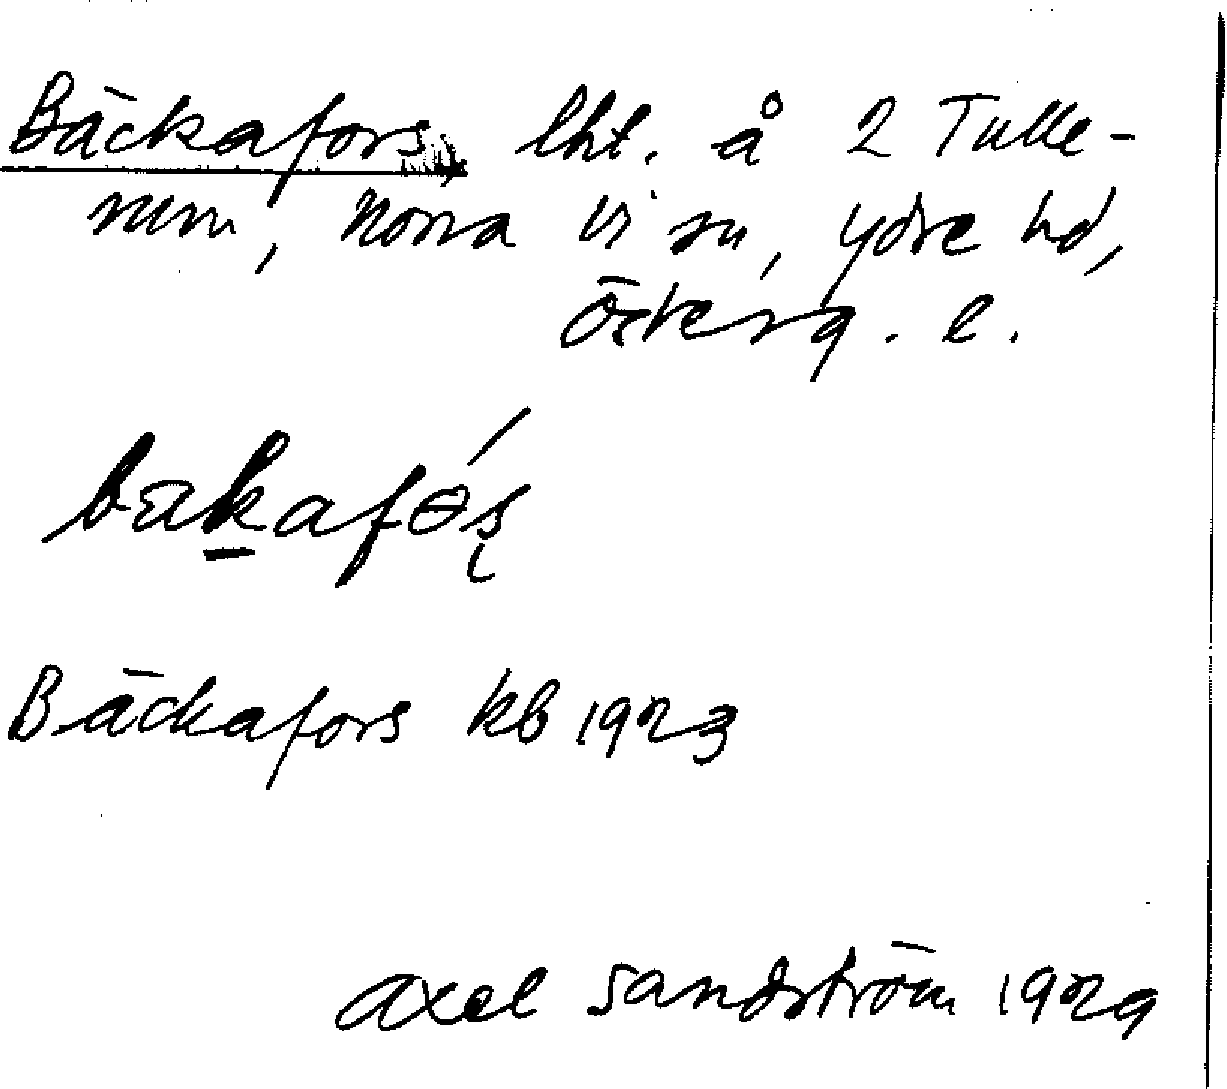 Bäckafors, lht. å 2 Tulle-
rum, Norra Vi sn, Ydre hd,
Österg. l.
Bäckafors kb 1923
Axel Sandström 1929